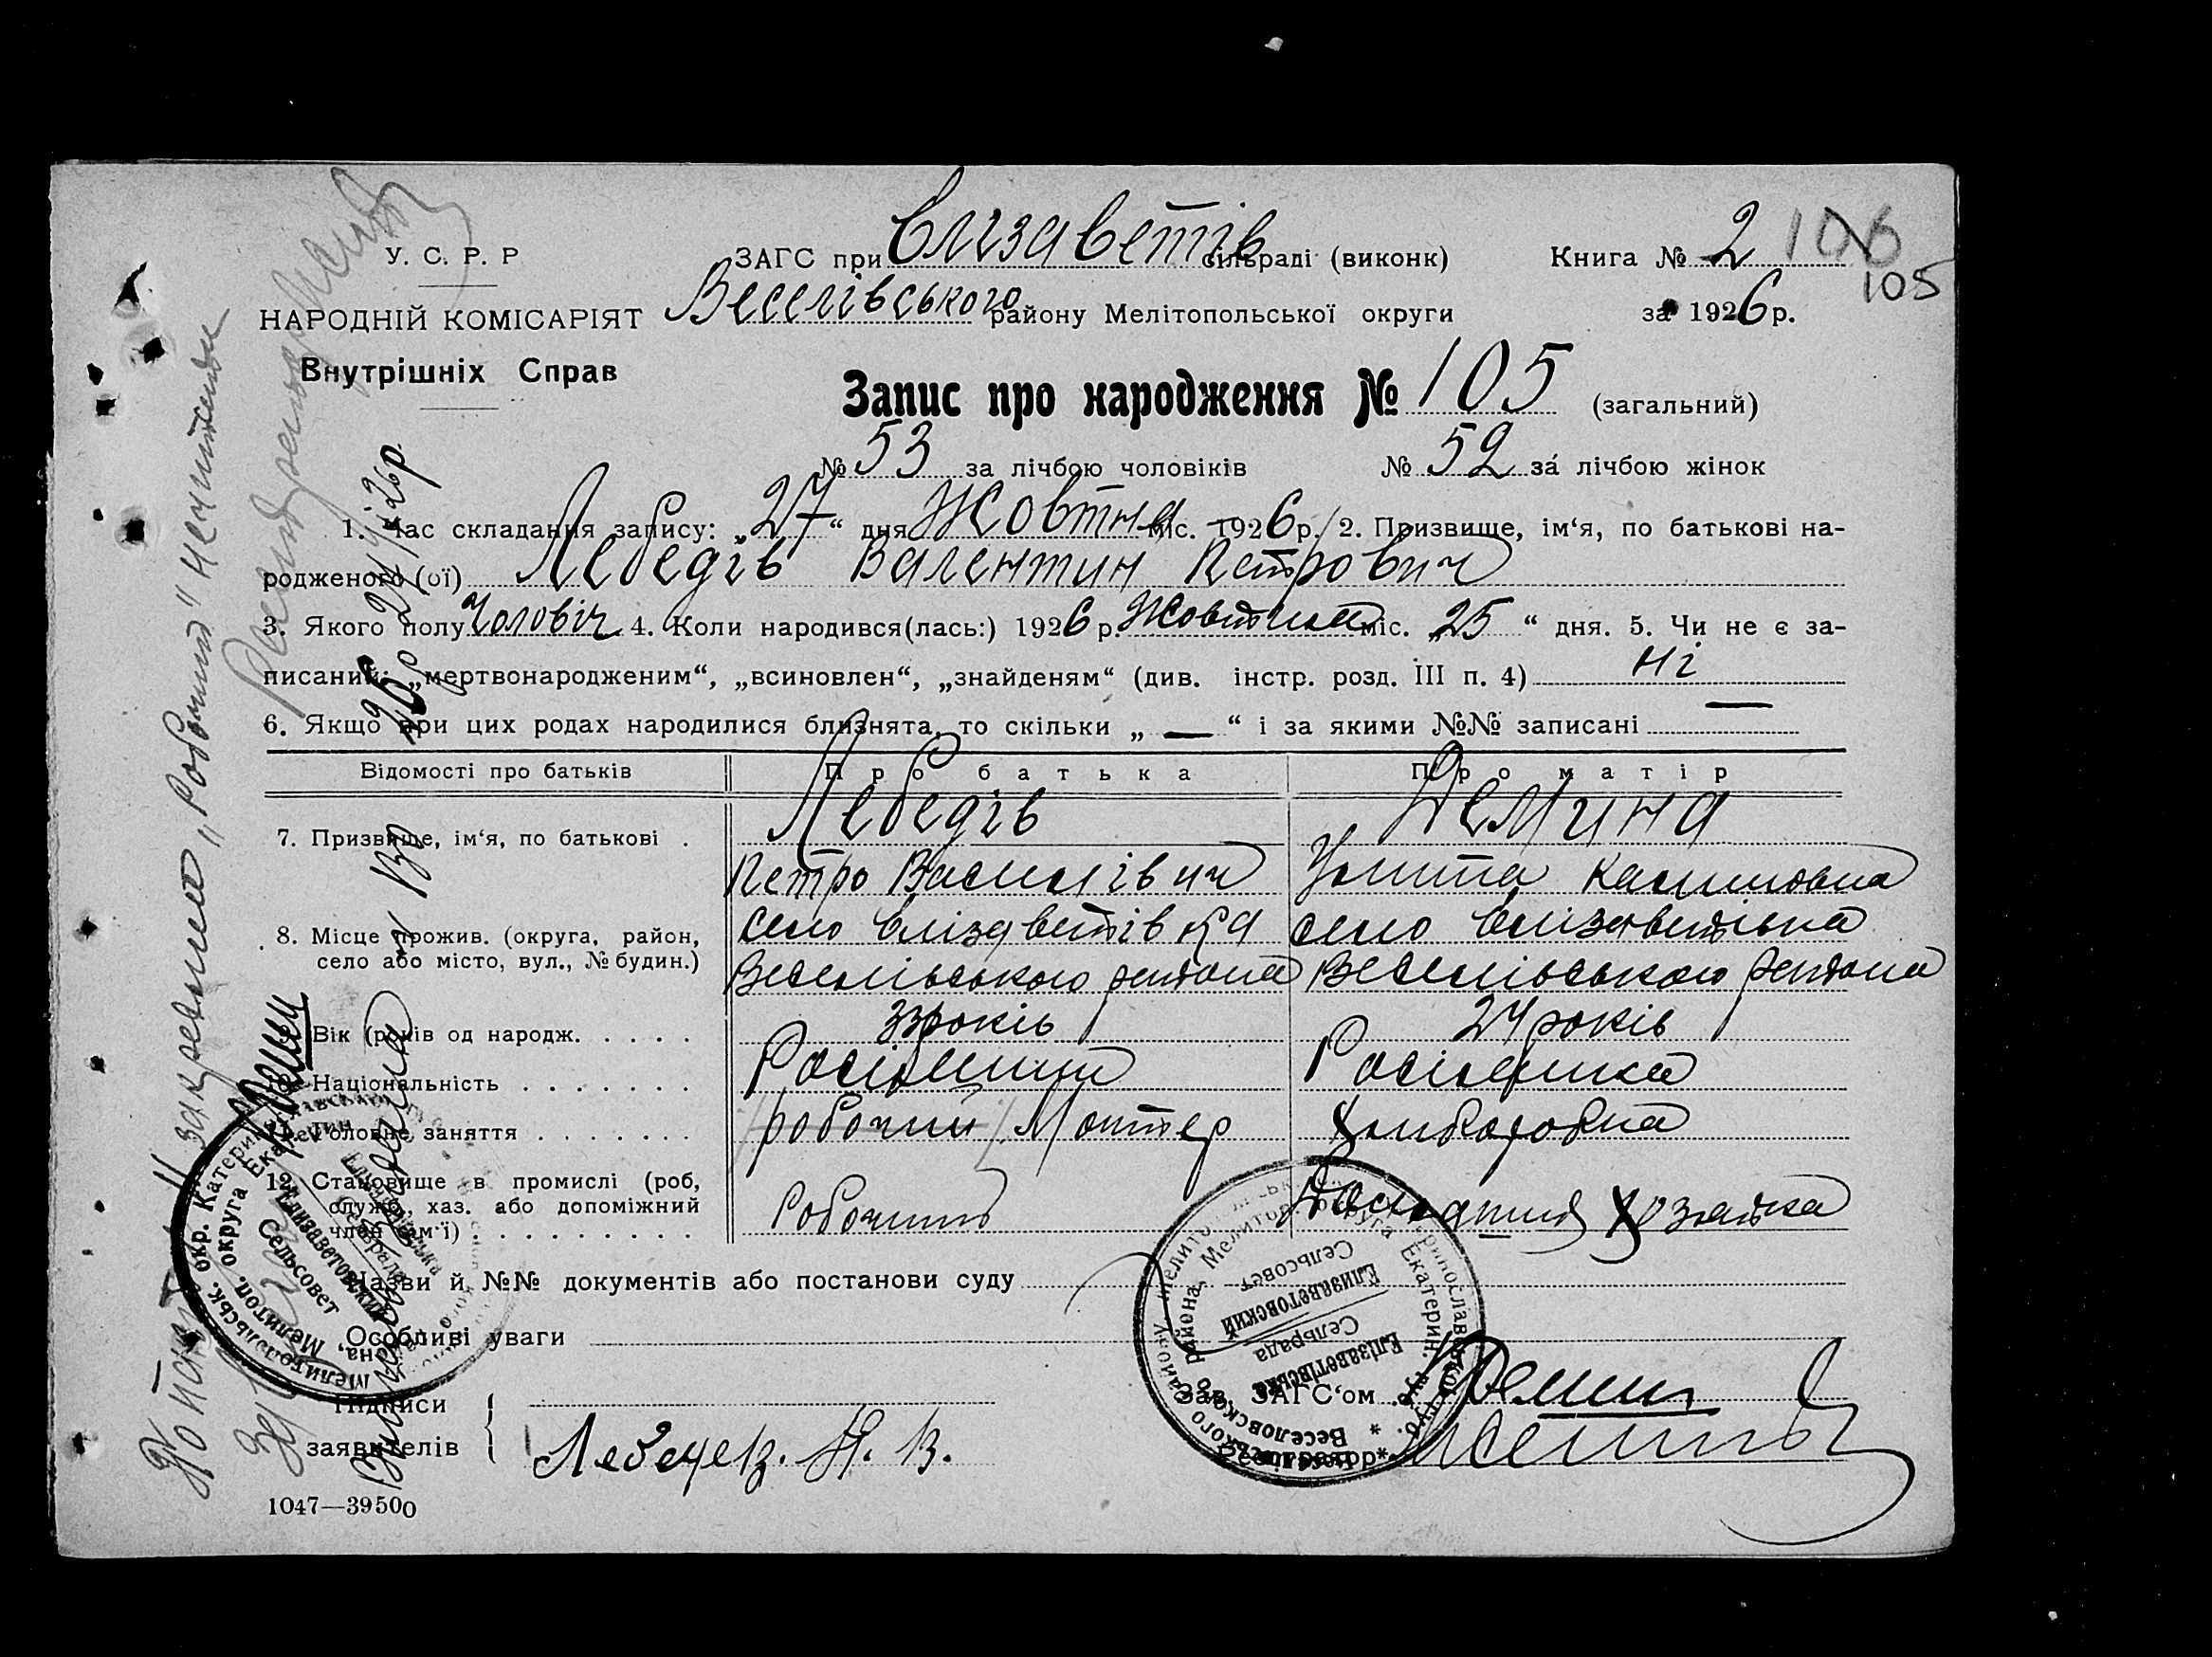 У. С. Р. Р
НАРОДНІЙ КОМІСАРІЯТ
Внутрішніх Справ
ЗАГС при Єлизаветів сільраді (виконк)
Веселівського району Мелітопольської округи
Книга № 2 106
105
за 1926 р.
Запис про народження № 105 (загальний)
№ 53 за лічбою чоловіків № 52 за лічбою жінок
1. Час складання запису: „27“ дня Жовтня міс. 1926 р. 2. Призвище, ім‘я, по батькові на-
родженого (ої) Лебедів Валентин Петрович
3. Якого полу Чоловіч 4. Коли народився(лась:) 1926 р. Жовтня міс. „25“ дня. 5. Чи не є за-
писаний: „мертвонародженим“, „всиновлен“, „знайденям“ (див. інстр. розд. III п. 4) ні
6. Якщо при цих родах народилися близнята, то скільки „ — “ і за якими №№ записані —
Відомості про батьків Про батька Про матір
7. Призвище, ім‘я, по батькові . Лебедів Демина
Петро Васильівич Улита
8. Місце прожив. (округа, район, село або місто, вул., № будин.)
село Єлізаветівка село Єлізаветівка
Веселівського району Веселівського району
9. Вік (років од народж. . . . . 33 років 24 років
10. Національність . . . . . . .
11. Головне заняття . . . . . . . робочий Монтер Хлиборобка
12. Становище в промислі (роб, служб., хаз. або допоміжний член сім‘ї) . . . . . . . . . . Робочий хозяйка
Назви й №№ документів або постанови суду
Особливі уваги
Підписи
заявителів
Лебедев. П. В.
Зав. ЗАГС‘ом Демин
1047—39500
Елизаветовский
Сельсовет
Єлізаветівська
Сельрада